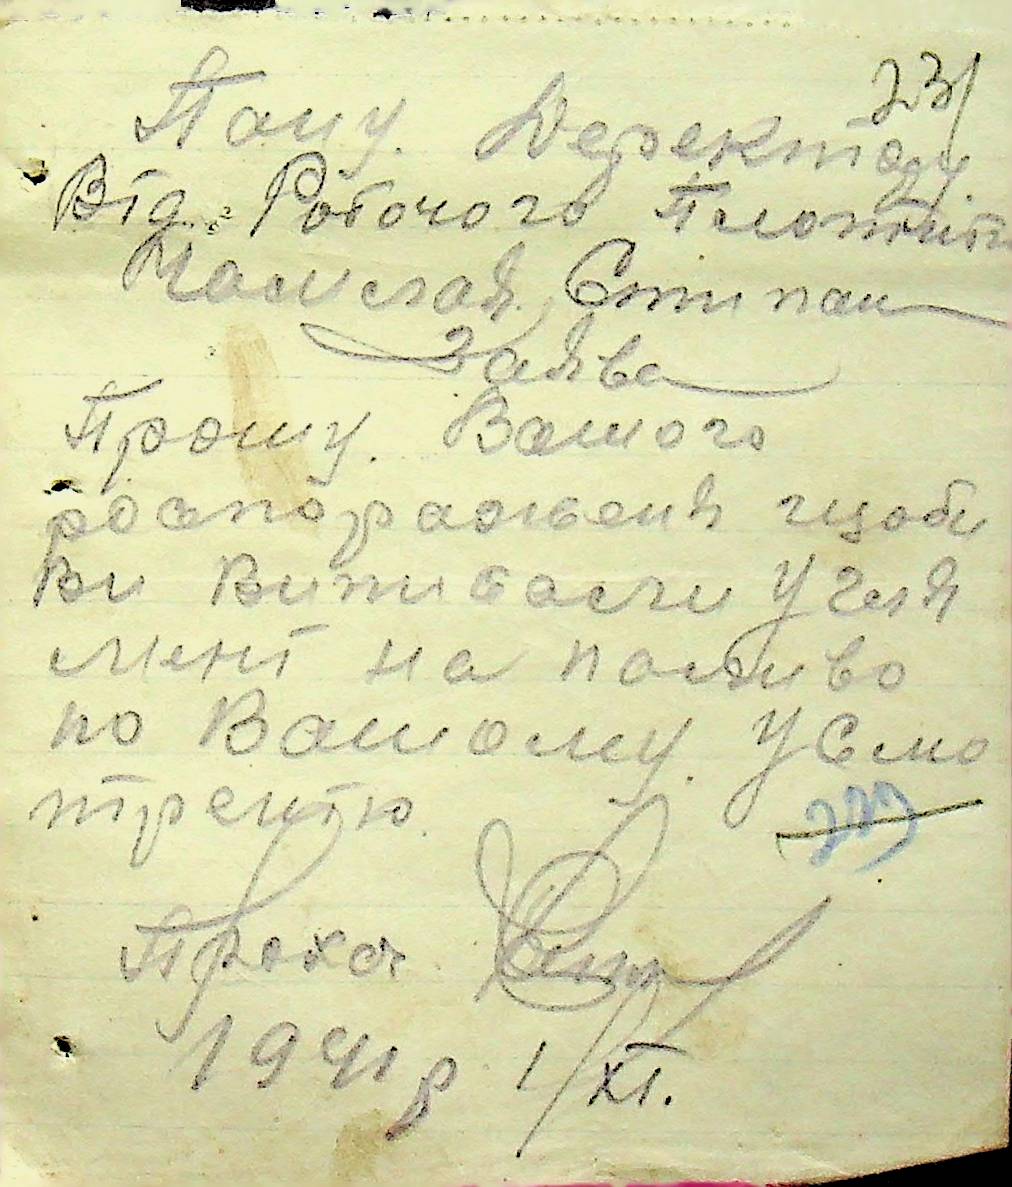 23
Пану Деректору
Від Робочого
Стипан
Заява
Прошу Вашого
роспоражения щоби
Ви Виписали Угля
мені на паливо
по Вашому Усмо
трению
Прохач
1941 р 1/XI.